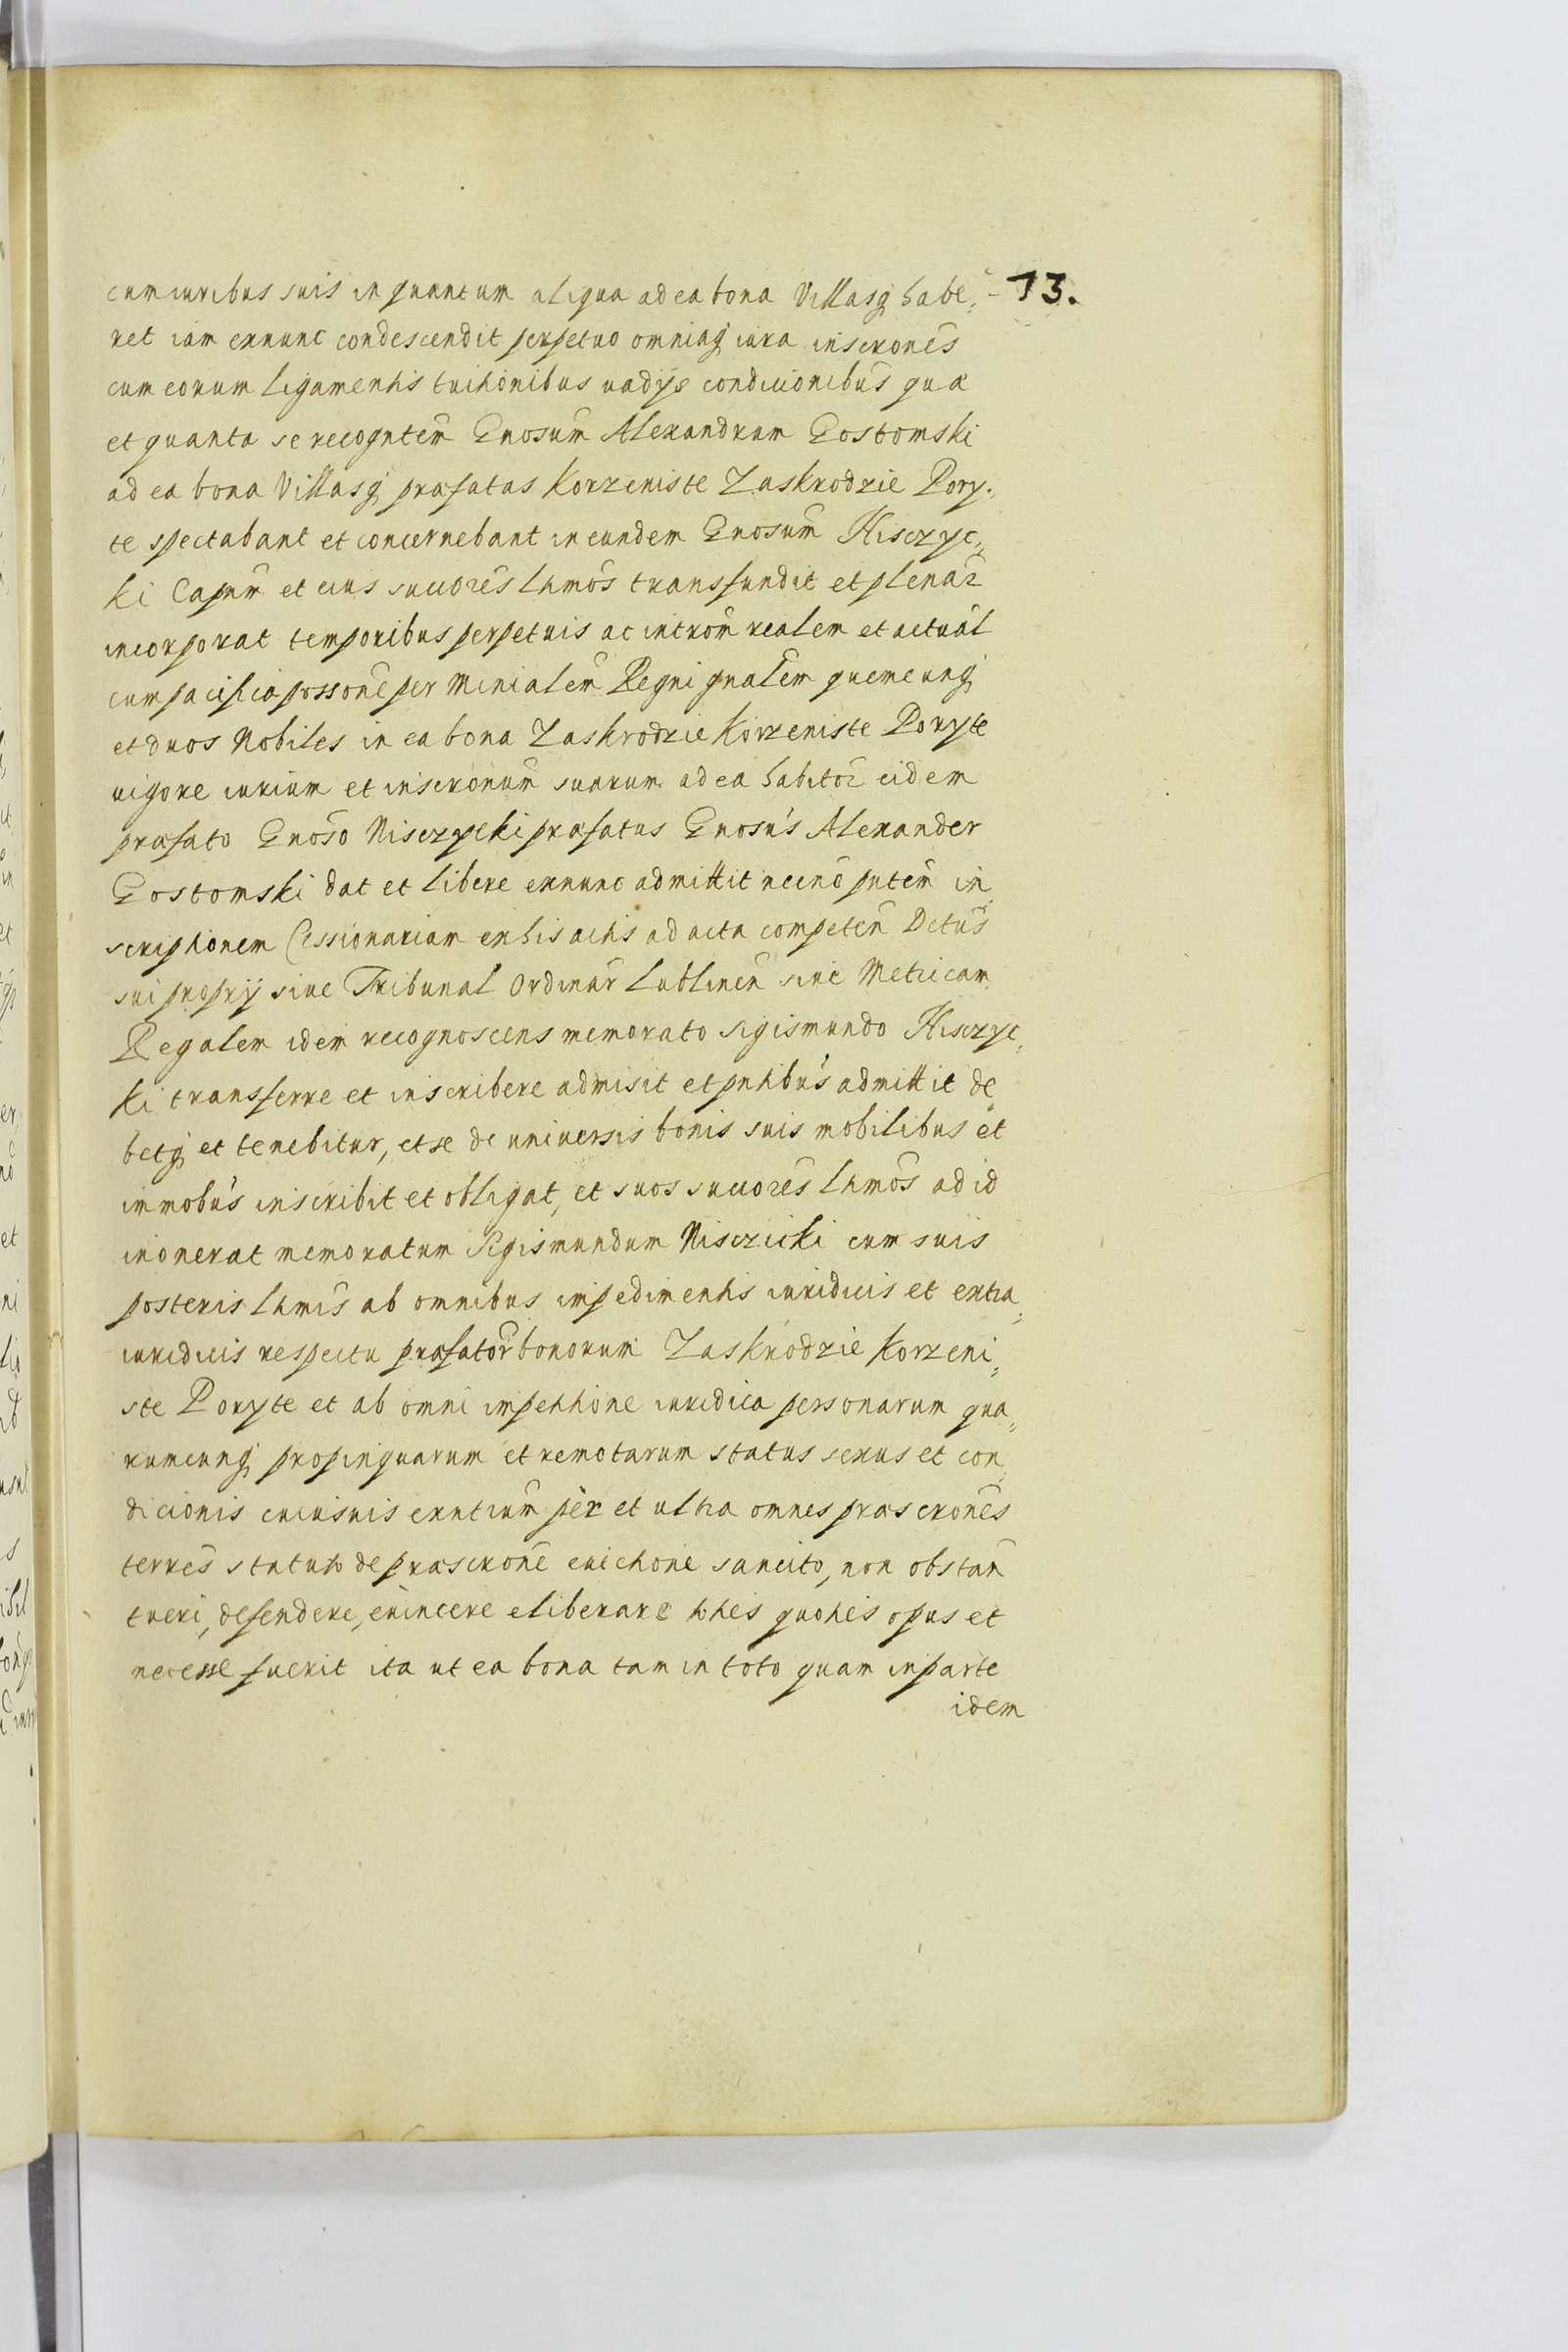 cum iuribus suis in quantum aliqua ad ea bona Villasq habe,
13.
ret iam exnunc condescendit perpetuo omniaq iura inscronēs
cum eorum ligamentis tuitionibus vadijs condicionibus̃ quæ
et quanta se recogntem̃ Gnosum̃ Alexandrum Gostomski
ad ea bona Villasq præfatas Korzeniste Zaskrodzie Pory,
te spectabant et concernebant in eundem Gnosum̃ Niszczyc,
ki Capnm̃ et eius succores̃ lt̃mos transfundit et plenar̃
incorporat temporibus perpetuis ac introm̃ realem et actual̃
cum pacifica possone per Minialem̃ Regni gnalem̃ quemcunq
et duos Nobiles in ea bona Zaskrodzie Korzeniste Poryte
uigore iurium et inscronum̃ suarum ad ea habitor̃ eidem
præfato Gnoso Nisczycki præfatus Gnosus Alexander
Gostomski dat et libere exnunc admittit necno pntem̃ in
scriptionem Cessionariam ex his actis ad acta competen̄ Dctus̃
sui proprij siue Tribunal Ordinar̃ Lublinen̄ siue Metricam
Regalem idem recognoscens memorato Sigismundo Nisczyc,
ki transferre et inscribere admisit et pntibus admittit de
betq et tenebitur, et se de uniuersis bonis suis mobilibus et
immobus inscribit et obligat, et suos succores̃ lt̃mos ad id
inonerat memoratum Sigismundum Nisczicki cum suis
posteris lt̃mis ab omnibus impedimentis iuridicis et extra,
iuridicis respectu præfator̃ bonorum Zaskrodzie Korzeni,
ste Poryte et ab omni impetitione iuridica personarum qua,
rumcunq propinquarum et remotarum status sexus et con,
dicionis cuiusuis exntium̃ per et ultra omnes præscrones̃
terres̃ statuto de præscrone euictione sancito, non obstan̄
tueri, defendere, euincere eliberare toties quoties opus et
necesse fuerit ita ut ea bona tam in toto quam in parte
idem